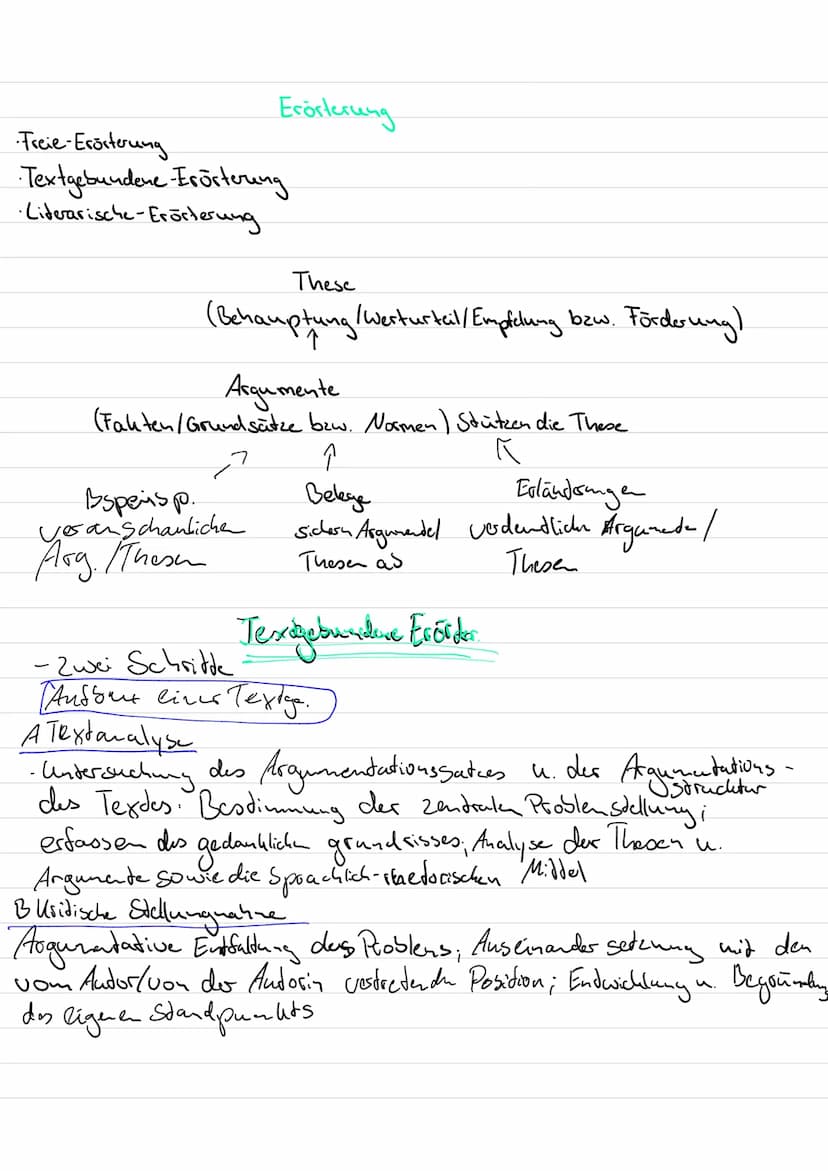 Erörterung
·Freie-Erörterung
·Textgebundene-Erörterung
·Literarische-Erörterung
These
(Behauptung/Werturteil/Empfelung bzw. Förderung)
Argumente
(Fakten/Grundsätze bzw. Normen) Stützen die These
Belege
veranschaulichen
sichern
Arg./Thesen
Thesen ab
Thesen
Textgebundene Erörter.
- Zwei Schritte
Aufbau einer Textge.
A Textanalyse
· Untersuchung des Argumentationssatzes u. der Argumentations-
struktur
des Textes. Bestimmung der zentralen Problemstellung;
erfassen des gedanklichen grundrisses; Analyse der Thesen u.
Argumente sowie die Sprachlich-rhetorischen Mittel
B Kritische Stellungnahme
Argumentative Entfaltung des Problems; Auseinander setzung mit den
vom Autor/von der Autorin vertretenden Position; Entwicklung u. Begründung
des eigenen Standpunkts